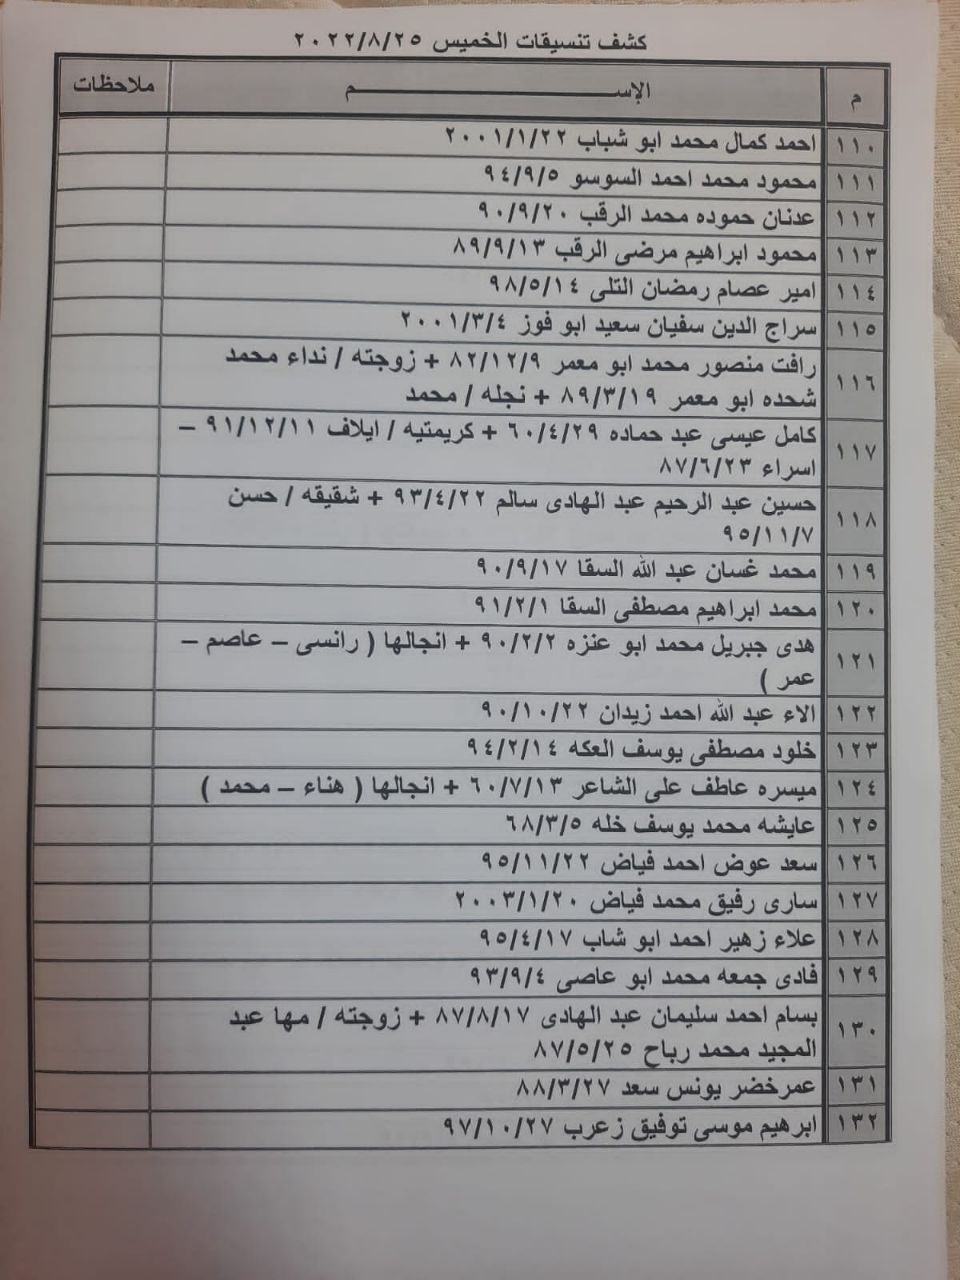 كشف تنسيقات الخميس ٢٠٢٢/٨/٢٥
م الإســـم ملاحظات
١١٠ احمد كمال محمد ابو شباب ٢٠٠١/١/٢٢
١١١ محمود محمد احمد السوسو ٩٤/٩/٥
١١٢ عدنان حموده محمد الرقب ٩٠/٩/٢٠
١١٣ محمود ابراهيم مرضى الرقب ٨٩/٩/١٣
١١٤ امير عصام رمضان التلى ٩٨/٥/١٤
١١٥ سراج الدين سفيان سعيد ابو فوز ٢٠٠١/٣/٤
١١٦ رافت منصور محمد ابو معمر ٨٢/١٢/٩ + زوجته / نداء محمد
شحده ابو معمر ٨٩/٣/١٩ + نجله / محمد
١١٧ كامل عيسى عبد حماده ٦٠/٤/٢٩ + كريمتيه / ايلاف ٩١/١٢/١١ –
اسراء ٨٧/٦/٢٣
١١٨ حسين عبد الرحيم عبد الهادى سالم ٩٣/٤/٢٢ + شقيقه / حسن
٩٥/١١/٧
١١٩ محمد غسان عبد الله السقا ٩٠/٩/١٧
١٢٠ محمد ابراهيم مصطفى السقا ٩١/٢/١
١٢١ هدى جبريل محمد ابو عنزه ٩٠/٢/٢ + انجالها ( رانسى – عاصم –
عمر )
١٢٢ الاء عبد الله احمد زيدان ٩٠/١٠/٢٢
١٢٣ خلود مصطفى يوسف العكه ٩٤/٢/١٤
١٢٤ ميسره عاطف على الشاعر ٦٠/٧/١٣ + انجالها ( هناء – محمد )
١٢٥ عايشه محمد يوسف خله ٦٨/٣/٥
١٢٦ سعد عوض احمد فياض ٩٥/١١/٢٢
١٢٧ سارى رفيق محمد فياض ٢٠٠٣/١/٢٠
١٢٨ علاء زهير احمد ابو شاب ٩٥/٤/١٧
١٢٩ فادى جمعه محمد ابو عاصى ٩٣/٩/٤
١٣٠ بسام احمد سليمان عبد الهادى ٨٧/٨/١٧ + زوجته / مها عبد
المجيد محمد رباح ٨٧/٥/٢٥
١٣١ عمرخضر يونس سعد ٨٨/٣/٢٧
١٣٢ ابرهيم موسى توفيق زعرب ٩٧/١٠/٢٧